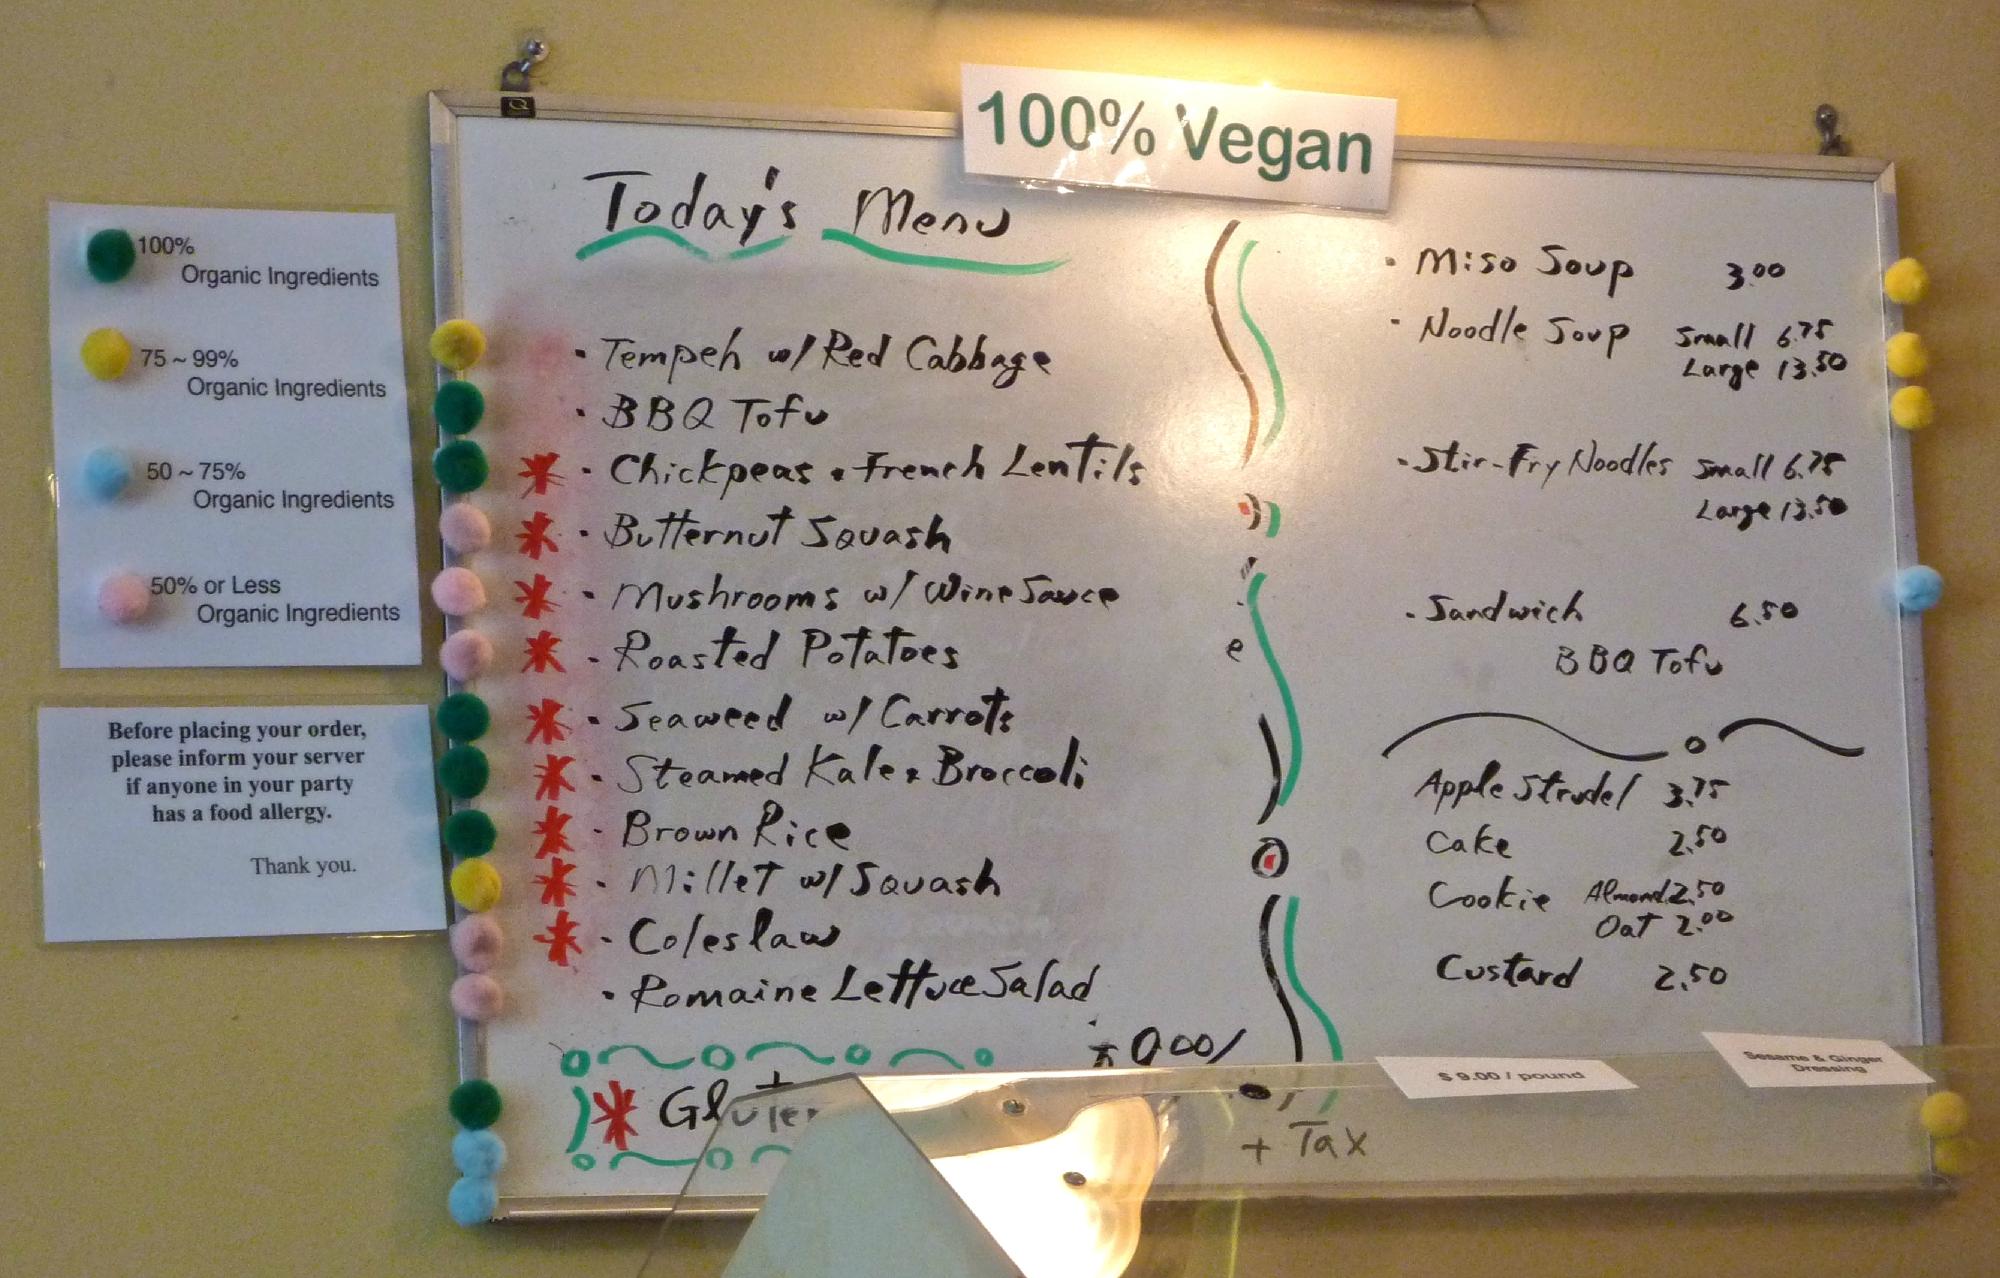 100% Vegan
100%
Organic Ingredients
75 ~ 99%
Organic Ingredients
50 ~ 75%
Organic Ingredients
50% or Less
Organic Ingredients
Before placing your order,
please inform your server
if anyone in your party
has a food allergy.
Thank you.
Today's Menu
· Tempeh w/ Red Cabbage
· BBQ Tofu
* · Chickpeas & French Lentils
* · Butternut Squash
* · Mushrooms w/ Wine Sauce
* · Roasted Potatoes
* · Seaweed w/ Carrots
* · Steamed Kale & Broccoli
* · Brown Rice
* · Millet w/ Squash
* · Coleslaw
· Romaine Lettuce Salad
* Gluten
+ Tax
· Miso Soup 3.00
· Noodle Soup Small 6.75
Large 13.50
· Stir-Fry Noodles Small 6.75
Large 13.50
· Sandwich 6.50
BBQ Tofu
Apple Strudel 3.75
Cake 2.50
Cookie Almond 2.50
Oat 2.00
Custard 2.50
$ 9.00 / pound
Sesame & Ginger
Dressing